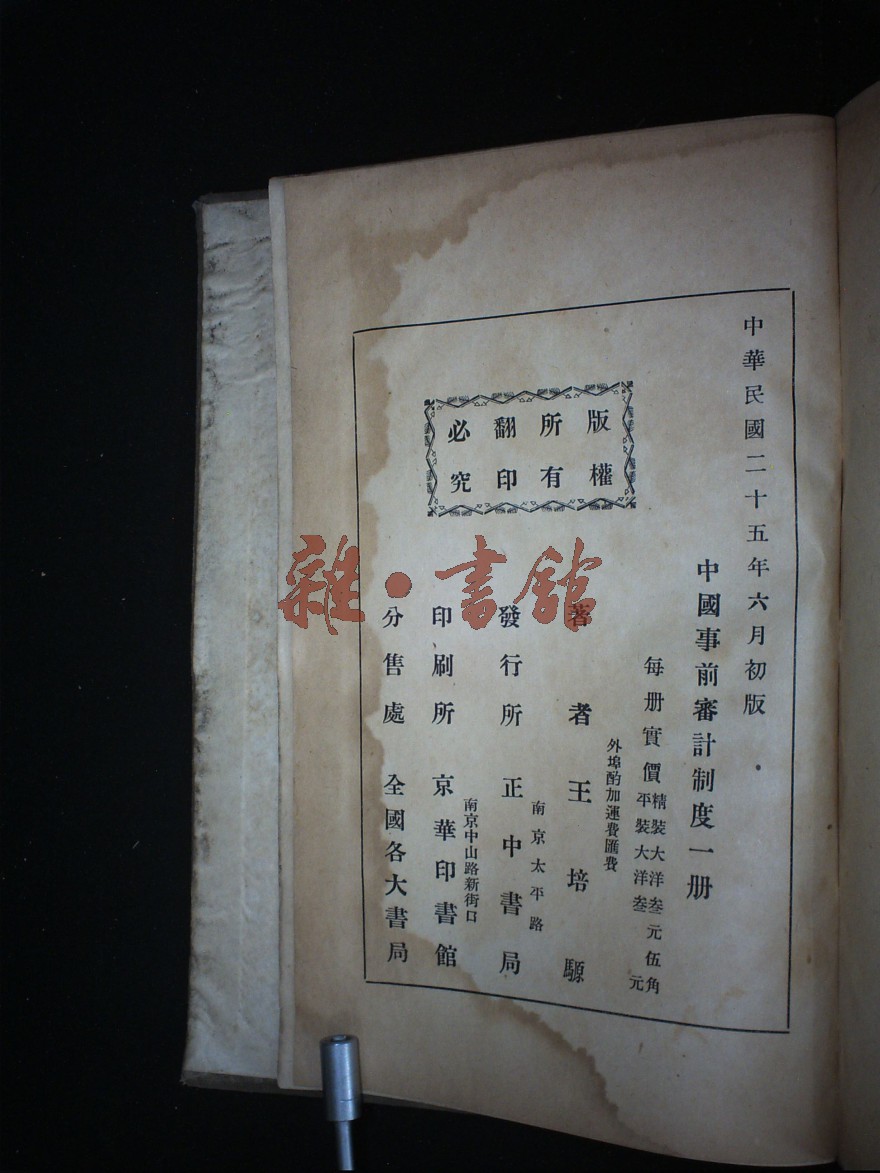 中華民國二十五年六月初版
中國事前審計制度一册
每册實價
精裝大洋叁元伍角
平裝大洋叁元
外埠酌加運費匯費
著者王培騵
南京太平路
發行所正中書局
南京中山路新街口
印刷所京華印書館
分售處全國各大書局
版權
所有
翻印
必究
雜·書館